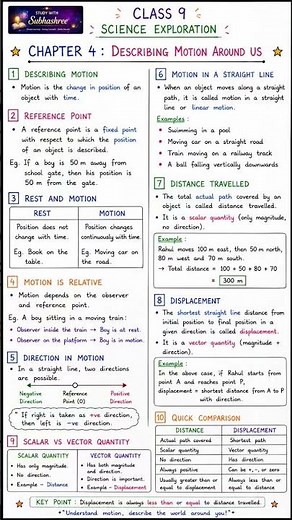 STUDY WITH
Subhashree
CLASS 9
SCIENCE EXPLORATION
CHAPTER 4 : DESCRIBING MOTION AROUND US
1 DESCRIBING MOTION
• Motion is the change in position of an
object with time.
2 REFERENCE POINT
• A reference point is a fixed point
with respect to which the position
of an object is described.
Eg. If a boy is 50 m away from
school gate, then his position is
50 m from the gate.
3 REST AND MOTION
REST MOTION
Position does not
change with time.
Position changes
continuously with time.
Eg. Book on the
table.
Eg. Moving car on
the road.
4 MOTION IS RELATIVE
• Motion depends on the observer
and reference point.
Eg. A boy sitting in a moving train:
• Observer inside the train → Boy is at rest.
• Observer on the platform → Boy is in motion.
5 DIRECTION IN MOTION
• In a straight line, two directions
are possible.
Negative
Direction
Reference
Point (O)
Positive
Direction
* If right is taken as +ve direction,
then left is -ve direction.
9 SCALAR VS VECTOR QUANTITY
SCALAR QUANTITY
• Has only magnitude.
• No direction.
• Example - Distance
VECTOR QUANTITY
• Has both magnitude
and direction.
• Direction is important.
• Example - Displacement
6 MOTION IN A STRAIGHT LINE
• When an object moves along a straight
path, it is called motion in a straight
line or linear motion.
Examples :
• Swimming in a pool
• Moving car on a straight road
• Train moving on a railway track
• A ball falling vertically downwards
7 DISTANCE TRAVELLED
• The total actual path covered by an
object is called distance travelled.
• It is a scalar quantity (only magnitude,
no direction).
Example :
Rahul moves 100 m east, then 50 m north,
80 m west and 70 m south.
→ Total distance = 100 + 50 + 80 + 70
= 300 m
8 DISPLACEMENT
• The shortest straight line distance from
initial position to final position in a
given direction is called displacement.
• It is a vector quantity (magnitude +
direction).
Example :
In the above case, if Rahul starts from
point A and reaches point P,
displacement = shortest distance from A to P
with direction.
10 QUICK COMPARISON
DISTANCE DISPLACEMENT
Actual path covered Shortest path
Scalar quantity Vector quantity
No direction Has direction
Always positive Can be +, - or zero
Usually greater than or
equal to displacement
Always less than or
equal to distance
KEY POINT : Displacement is always less than or equal to distance travelled.
"Understand motion, describe the world around you!"